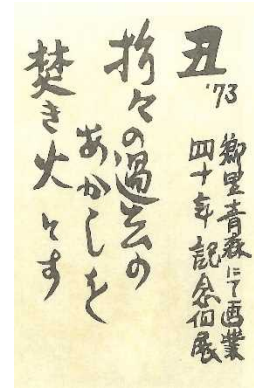 丑
'73
郷里青森にて画業
四十年記念個展
折々の過去の
あかしを
焚き火とす